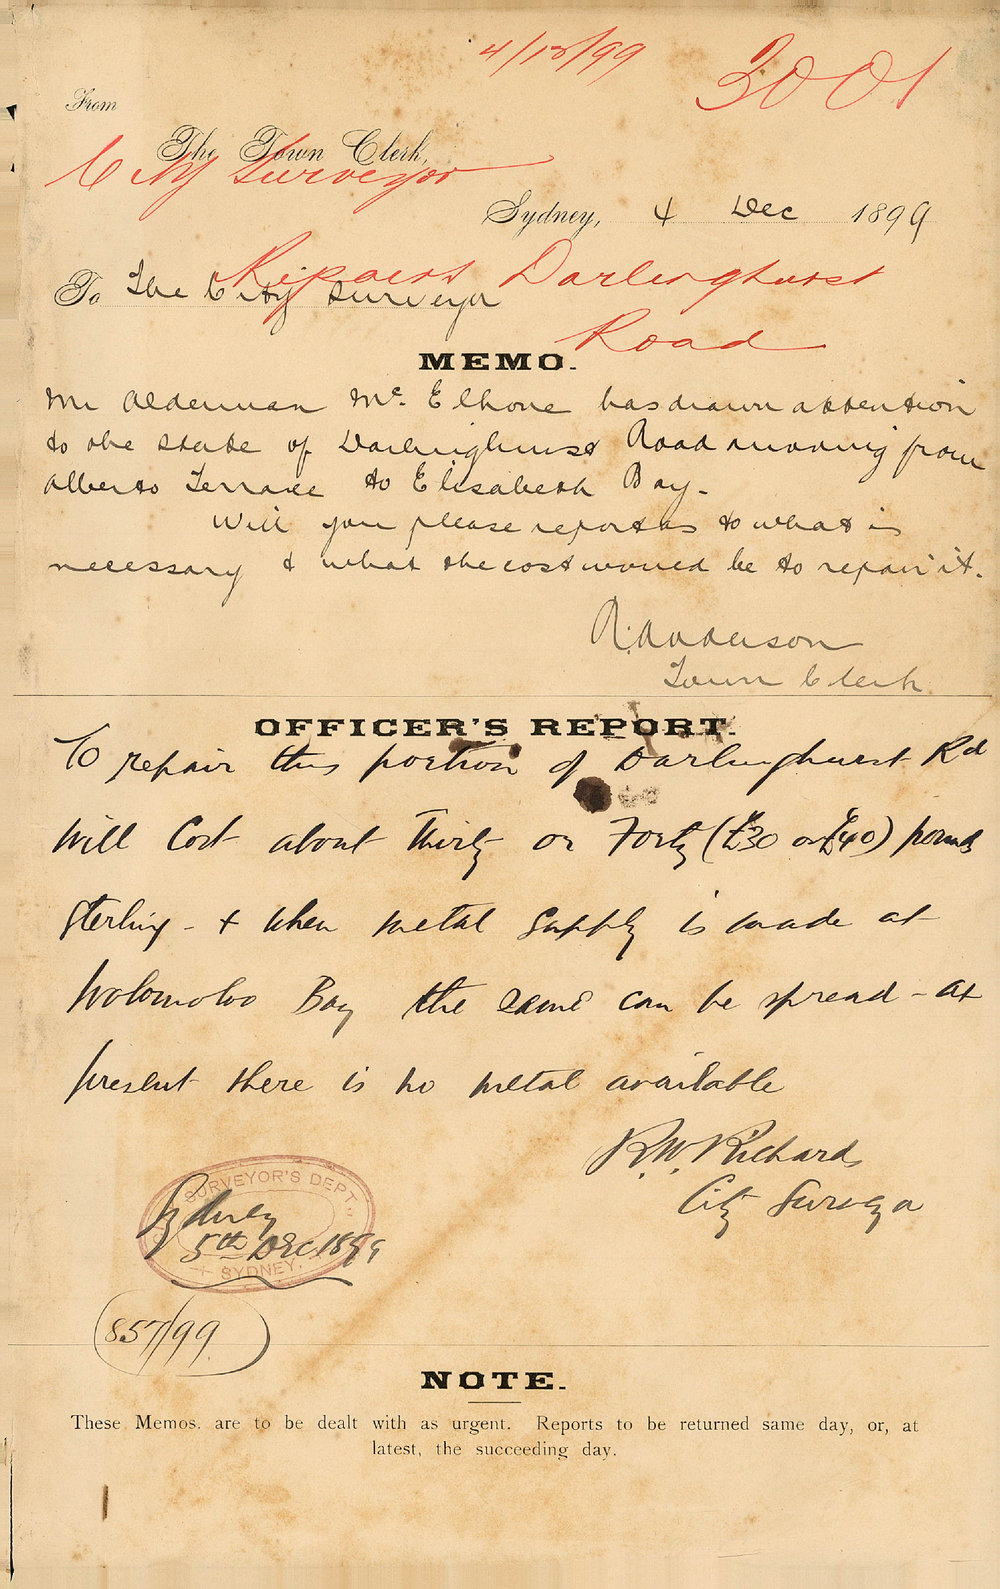 4/12/99
3001
From
The Town Clerk,
City Surveyor
Sydney, 4 Dec 1899
Repairs Darlinghurst
To The City Surveyor
Road
MEMO.
Mr Alderman Mc. Elhone has drawn attention
to the state of Darlinghurst Road running from
Alberto Terrace to Elisabeth Bay.
Will you please report as to what is
necessary & what the cost would be to repair it.
R. Anderson
Town Clerk
OFFICER'S REPORT.
To repair this portion of Darlinghurst Rd
will cost about Thirty or Forty (£30 or £40) pounds
Sterling - & when metal supply is made at
Wolomoloo Bay the same can be spread - at
present there is no metal available
R.W. Richards
City Surveyor
SURVEYOR'S DEPT.
Sydney
5th Dec 1899
SYDNEY.
857/99
NOTE.
These Memos. are to be dealt with as urgent. Reports to be returned same day, or, at
latest, the succeeding day.